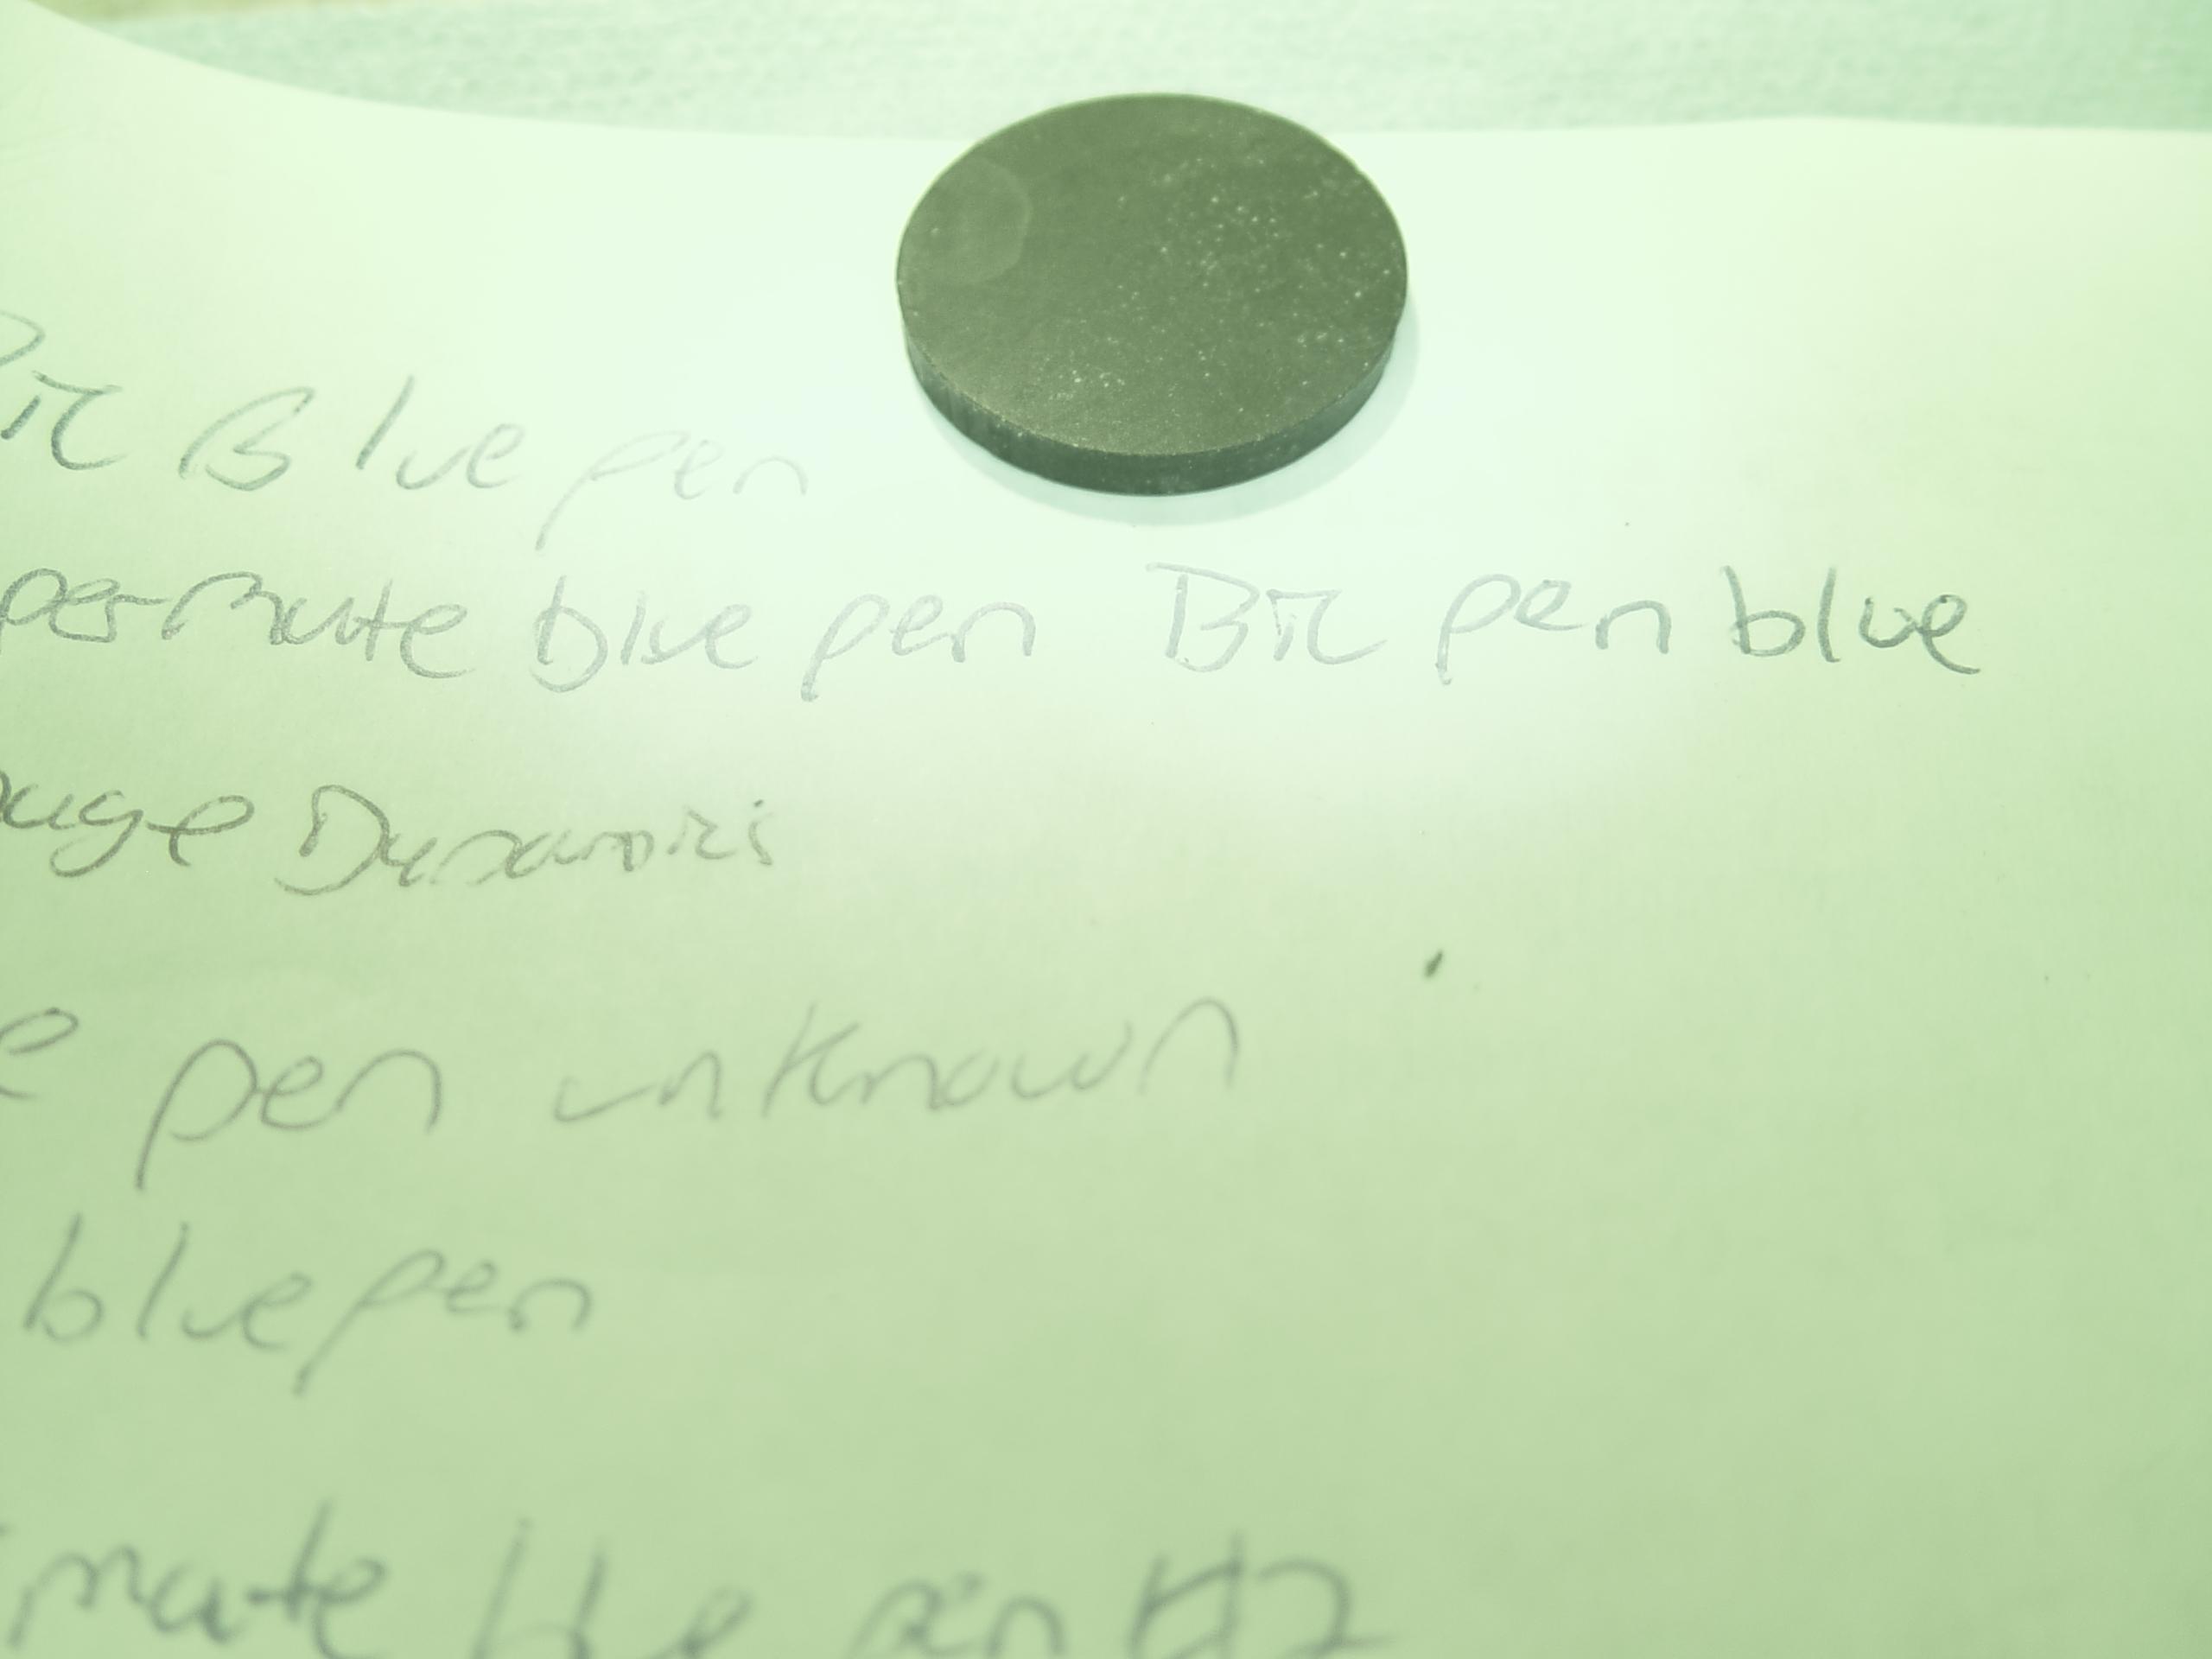 BIC Blue pen
permate blue pen BIC pen blue
Dynamics
pen unknown
blue pen
mate blue pen #2